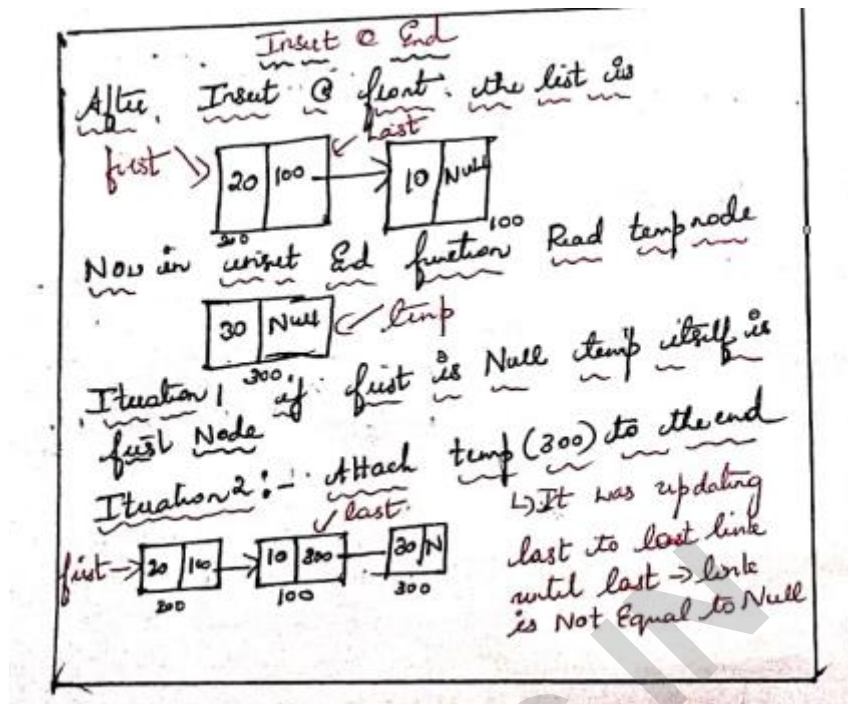 Insert @ End
After, Insert @ front. the list is
first
last
20 100
10 NULL
200
100
Now in insert End function Read temp node
30 Null
temp
300
Iteration 1 if first is Null temp itself is
first Node
Iteration 2 :- Attach temp (300) to the end
↳ It was updating
last to last link
until last → link
is Not Equal to Null
last.
first → 20 100 → 10 300 30 N
200
100
300
IN